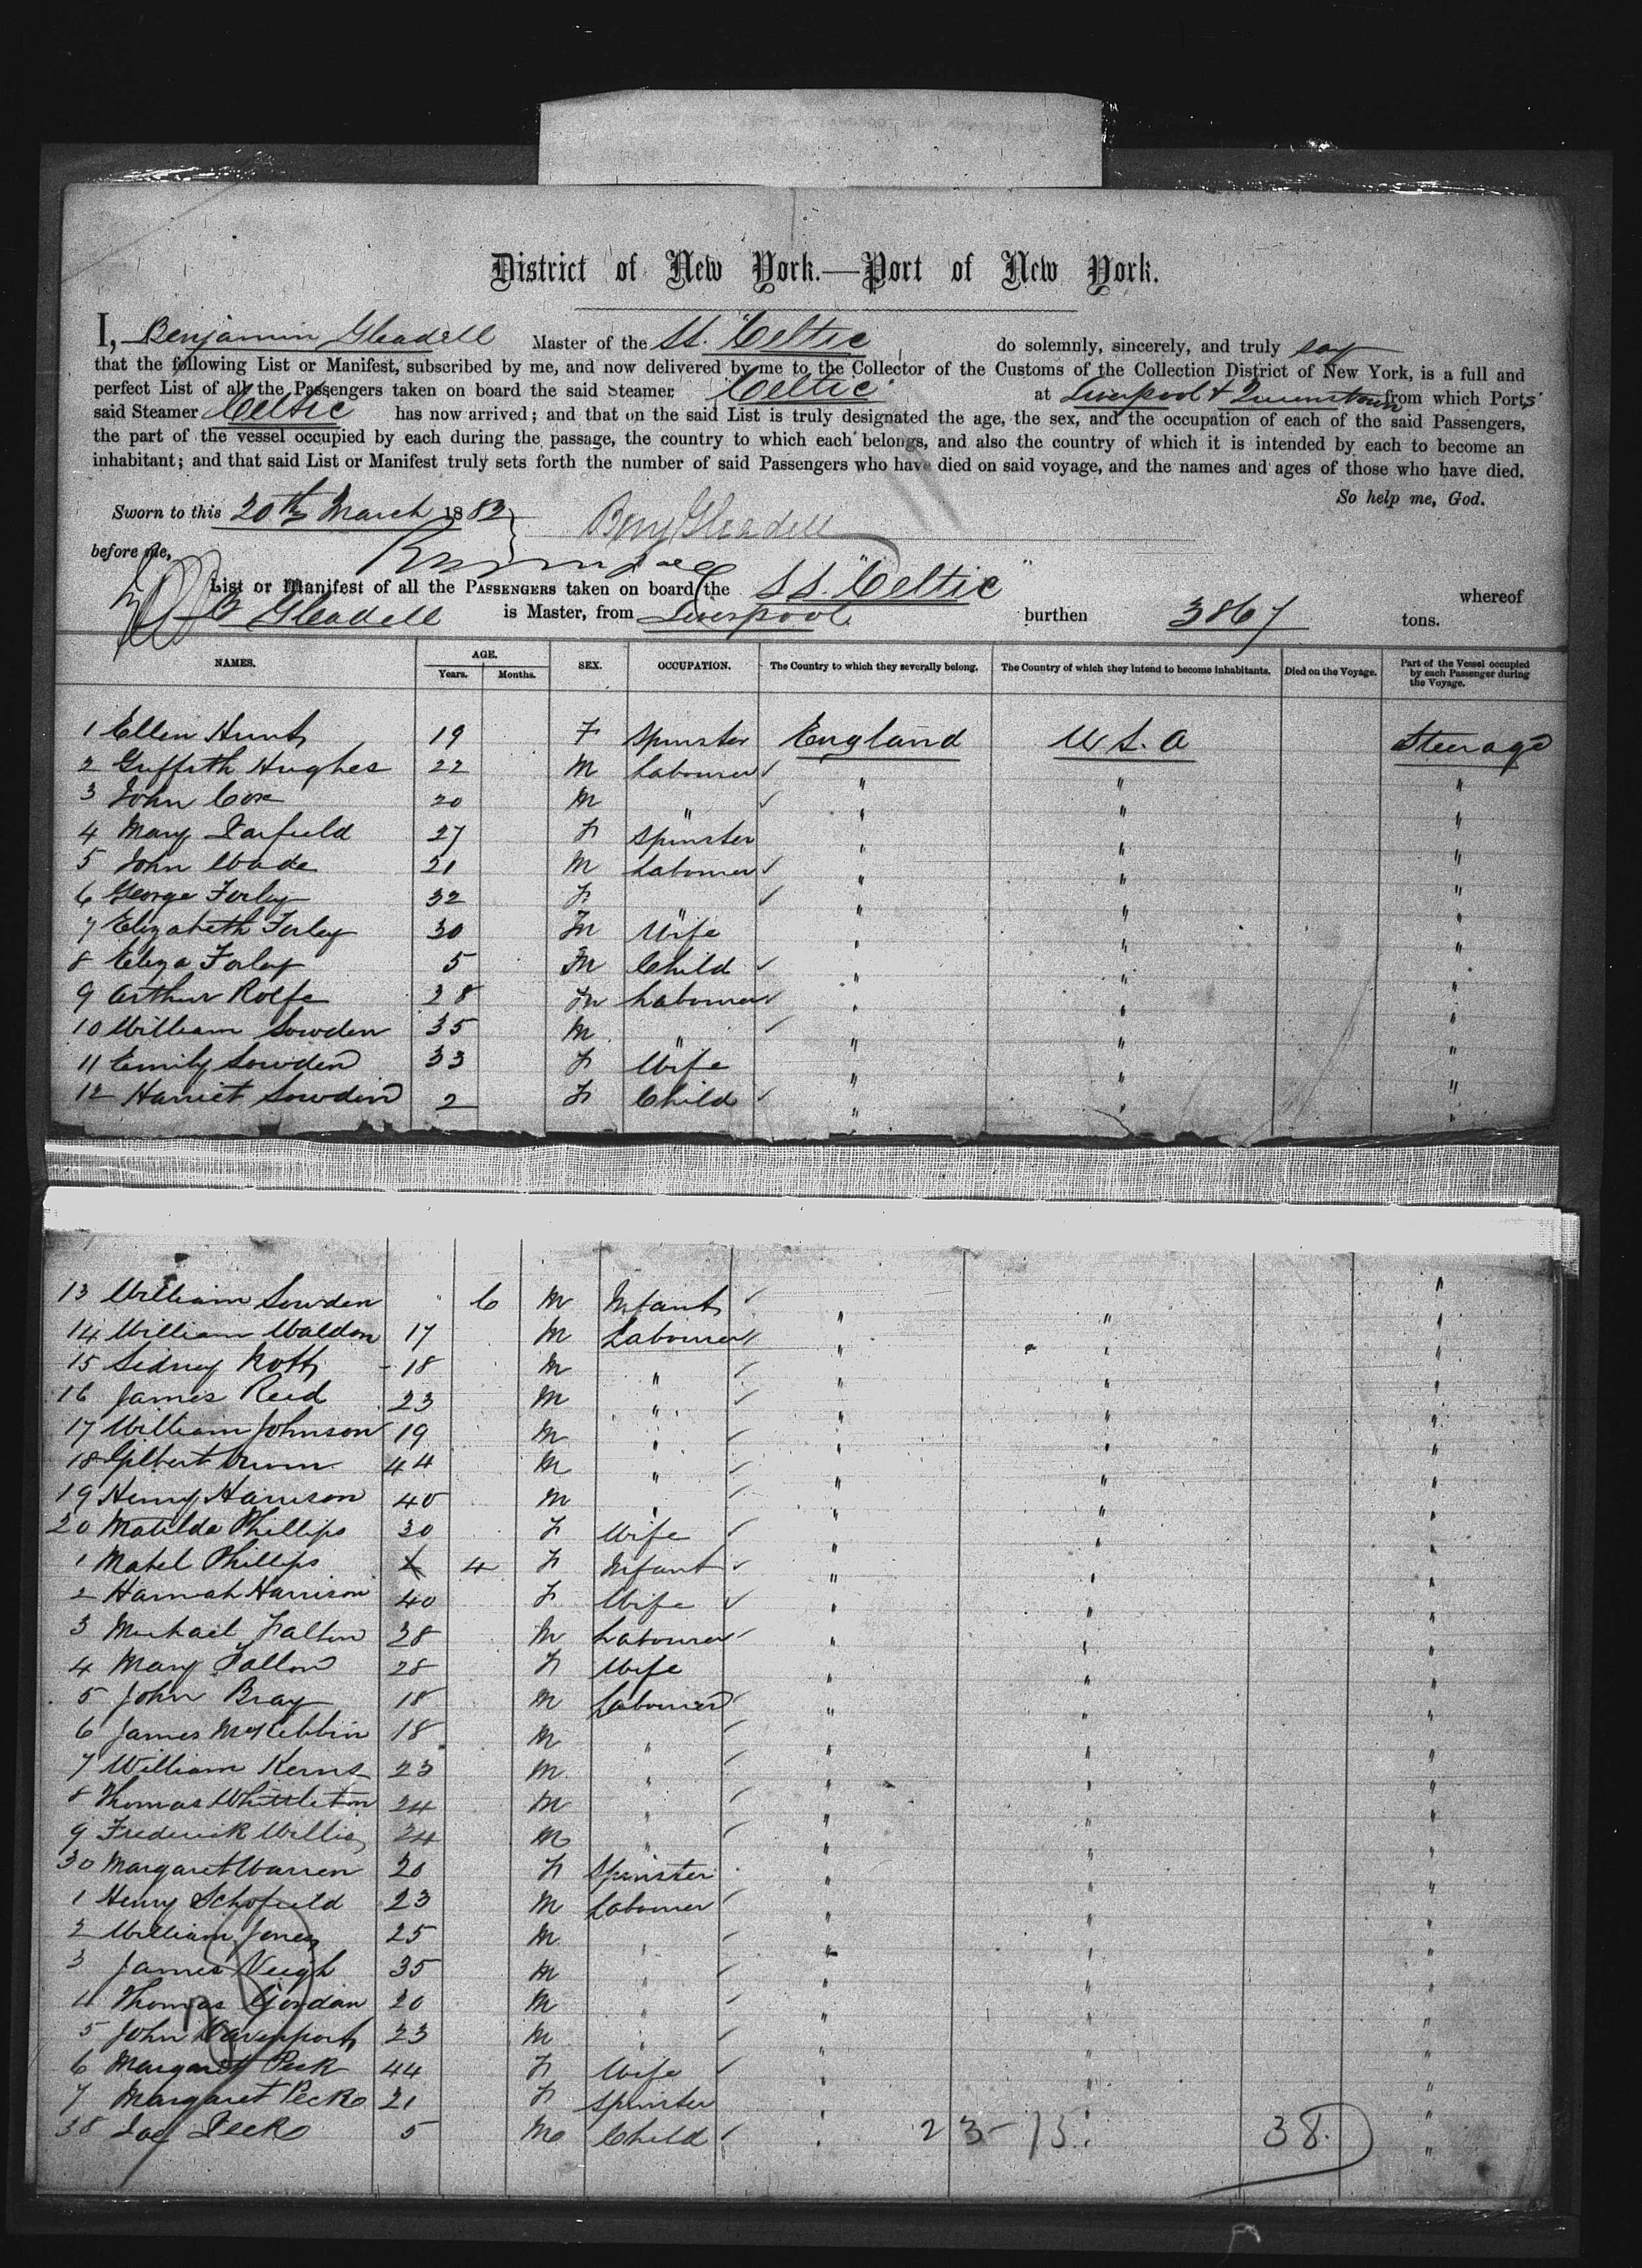 District of New York.—Port of New York.
I, Benjamin Gleadell Master of the SS. "Celtic" do solemnly, sincerely, and truly say
that the following List or Manifest, subscribed by me, and now delivered by me to the Collector of the Customs of the Collection District of New York, is a full and
perfect List of all the Passengers taken on board the said Steamer "Celtic" at Liverpool & Queenstown from which Ports
said Steamer Celtic has now arrived; and that on the said List is truly designated the age, the sex, and the occupation of each of the said Passengers,
the part of the vessel occupied by each during the passage, the country to which each belongs, and also the country of which it is intended by each to become an
inhabitant; and that said List or Manifest truly sets forth the number of said Passengers who have died on said voyage, and the names and ages of those who have died.
So help me, God.
Sworn to this 20th March 1882 Benj Gleadell
before me,
List or Manifest of all the PASSENGERS taken on board the SS. "Celtic" whereof
B Gleadell is Master, from Liverpool burthen 3867 tons.
NAMES. AGE. SEX. OCCUPATION. The Country to which they severally belong. The Country of which they intend to become inhabitants. Died on the Voyage. Part of the Vessel occupied by each Passenger during the Voyage.
Years. Months.
1 Ellen Hunt 19 F Spinster England U S. A Steerage
2 Griffith Hughes 22 M Labourer " " "
3 John Cox 20 M " " " "
4 Mary 27 F Spinster " " "
5 John Wade 21 M Labourer " " "
6 George Forley 32 F " " " "
7 Elizabeth Forley 30 M Wife " " "
8 Eliza Forley 5 M Child " " "
9 Arthur Rolfe 28 M Labourer " " "
10 William Sowden 35 M " " " "
11 Emily Sowden 33 F Wife " " "
12 Harriet Sowden 2 F Child " " "
13 William Sowden 6 M Infant " " "
14 William Waldon 17 M Labourer " " "
15 Sidney Nott 18 M " " " "
16 James Reid 23 M " " " "
17 William Johnson 19 M " " " "
18 Gilbert 44 M " " " "
19 Henry Harrison 40 M " " " "
20 Matilda Phillips 30 F Wife " " "
1 Mabel Phillips 4 F Infant " " "
2 Hannah Harrison 40 F Wife " " "
3 Michael Fallon 28 M Labourer " " "
4 Mary Fallon 28 F Wife " " "
5 John Bray 18 M Labourer " " "
6 James McKibbin 18 M " " " "
7 William Kerns 23 M " " " "
8 Thomas Whittleton 24 M " " " "
9 Frederick Willis 24 M " " " "
30 Margaret Warren 20 F Spinster " " "
1 Henry Schofield 23 M Labourer " " "
2 William Jones 25 M " " " "
3 James Veigh 35 M " " " "
4 Thomas Gordan 20 M " " " "
5 John Davenport 23 M " " " "
6 Margaret Peck 44 F Wife " " "
7 Margaret Peck 21 F Spinster " " "
38 Peck 5 M Child " 23-15 38. "